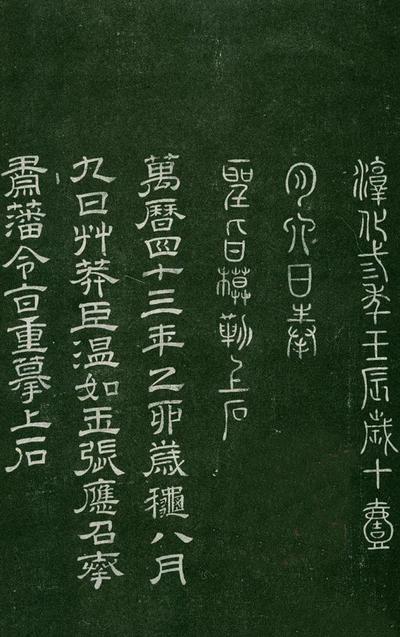 淳化弎年壬辰歲十壹
月六日奉
聖旨模勒上石
萬曆四十三年乙卯歲龝八月
九日艸莽臣温如玉張應召奉
肅藩令旨重摹上石